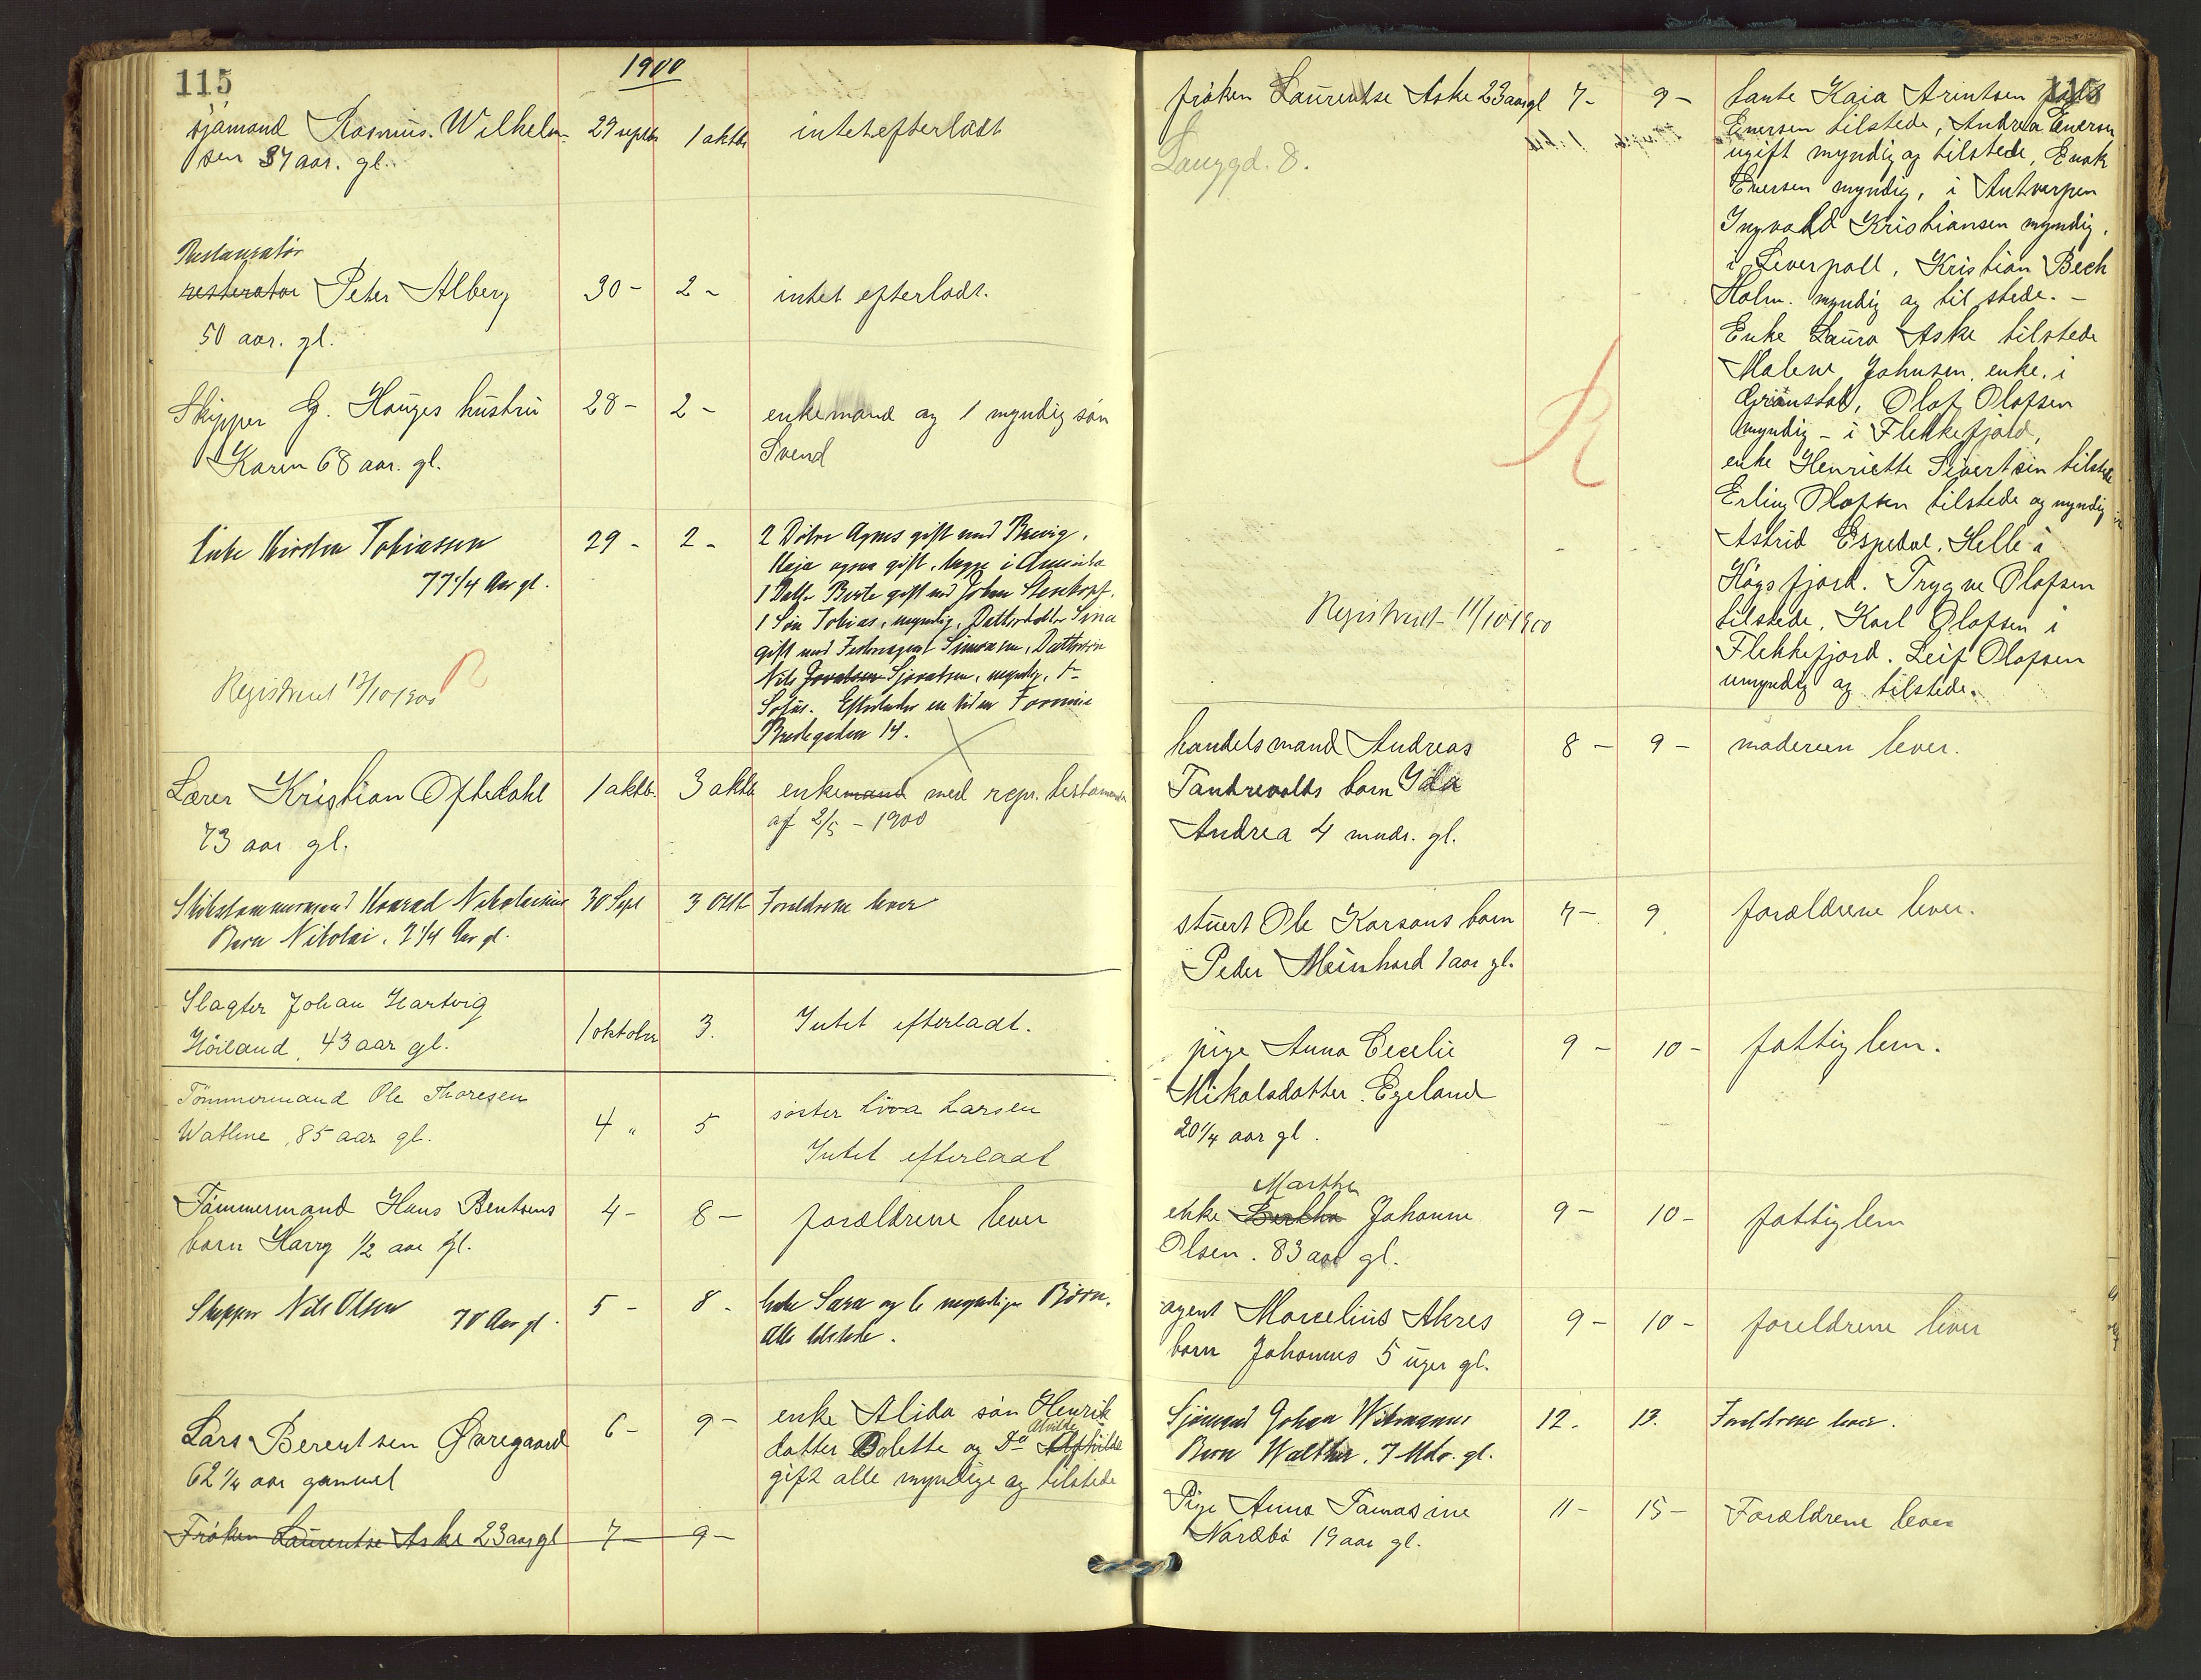 115
1900
sjømand Rasmus Wilhelm- 29 septbr 1 oktbr intet efterladt
sen 37 aar. gl.
Restauratør
resterator Peter Alberg 30 - 2 - intet efterladt.
50 aar. gl.
Skipper G. Houges hustru 28 - 2 - enkemand og 1 myndig søn
Karen 68 aar. gl. Svend
Enke Kirsten Tobiassen 29 - 2 - 2 Døtre Agnes gift med Brevig,
77 1/4 Aar gl. Kaja ogsaa gift, begge i Amerika
1 Datter Berte gift med Johan
1 Søn Tobias, myndig, Datterdatter Sina
gift med Simonsen, Dattersøn
Nils Sjovatsen, myndig, 1
Sofus. Efterlader en liden Formue
Registreret 12/10 1900 R
Bredegaden 14.
Lærer Kristian Oftedahl 1 oktbr. 3 oktb enkemand med repr. testament
73 aar gl. af 2/5 - 1900
Skibstømmermand Konrad Nikolaisens 30 Sept 3 Oktb Forældrene lever
Barn Nikolai, 2 1/4 Aar gl.
Slagter Johan Hartvig
Höiland, 43 aar gl. 1 oktober 3. Intet efterladt.
Tömmermand Ole Thoresen søster Liva Larsen
Watlene, 85 aar gl. 4 " 5 Intet efterladt
Tømmermand Hans Bentsens 4 - 8 - forældrene lever
barn Harry 1/2 aar gl.
Skipper Nils Olsen 70 Aar gl. 5 - 8 - Enke Sara og 6 myndige Børn,
alle tilstede.
Lars Berentsen Øvregaard 6 - 9 - enke Alida søn Henrik
Alvilde
62 1/4 aar gammel datter Bolette og Do Alfhilde
gift alle myndige og tilstede
Frøken Laurentse Aske 23 aar gl 7 - 9 -
115
frøken Laurentse Aske 23 aar gl 7 - 9 - tante Kaia Arentsen
Langgd. 8. Enersen tilstede, Andrea Enersen
ugift myndig og tilstede, Enok
Enersen myndig, i Antverpen
Ingvald Kristiansen myndig,
i Liverpoll, Kristian Bech
Holm. myndig og tilstede. -
Enke Laura Aske tilstede
Malene Johnsen, enke, i
Grimstad, Olaf Olafsen
myndig - i Flekkefjord,
enke Henriette Sivertsen tilstede
Erling Olafsen tilstede og myndig
Astrid Espedal, Helle i
Høgsfjord. Trygve Olafsen
tilstede, Karl Olafsen i
Flekkefjord. Leif Olafsen
umyndig og tilstede.
R
Registreret 11/10 1900
handelsmand Andreas 8 - 9 - moderen lever.
Tandrevolds barn Ida
Andrea 4 mndr. gl.
stuert Ole Karsons barn 7 - 9 forældrene lever.
Peder Meinhard 1 aar gl.
pige Anna Cecelie 9 - 10 - fattiglem.
Mikalsdatter Egeland
20 1/4 aar gl.
Marthe
enke Bertha Johanne 9 - 10 - fattiglem
Olsen. 83 aar gl.
agent Marcelius Akres 9 - 10 - foreldrene lever
barn Johannes 5 uger gl.
Sjømand Johan Widmanns 12. 13. Forældrene lever.
Barn Walther, 7 Mdr. gl.
Pige Anna Tamasine 11 - 15 - Forældrene lever
Nordbø 19 aar gl.